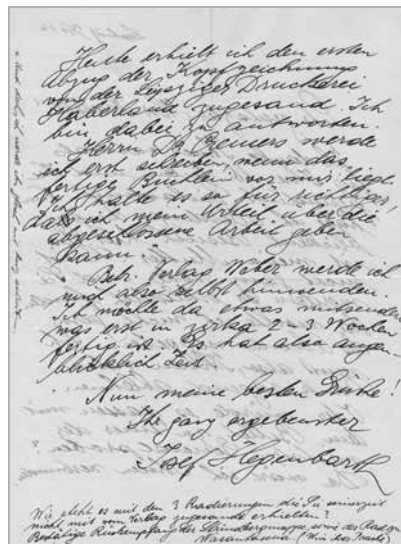 Heute erhielt ich den ersten
Abzug der Kopfzeichnung
von der Leipziger Druckerei
Haberland zugesand. Ich
bin dabei zu antworten.
Herrn Dr. Cremers werde
ich erst schreiben, wenn das
fertige Büchlein vor mir liegt.
Ich halte es so für richtiger,
daß ich mein Urteil über die
abgeschlossene Arbeit geben
kann.
Betr. Verlag Weber werde ich
mich also selbst hinwenden.
Ich möchte da etwas mitsenden
was erst in zirka 2-3 Wochen
fertig ist. Es hat also augen-
blicklich Zeit.
Nun meine besten Grüße!
Ihr ganz ergebenster
Josef Hegenbarth
Wie steht es mit den 3 Radierungen die Sie seinerzeit
nicht mit vom Verlag zugesandt erhielten?
Bestätige Rückempfang der Strindbergmappe, sowie der Rad.